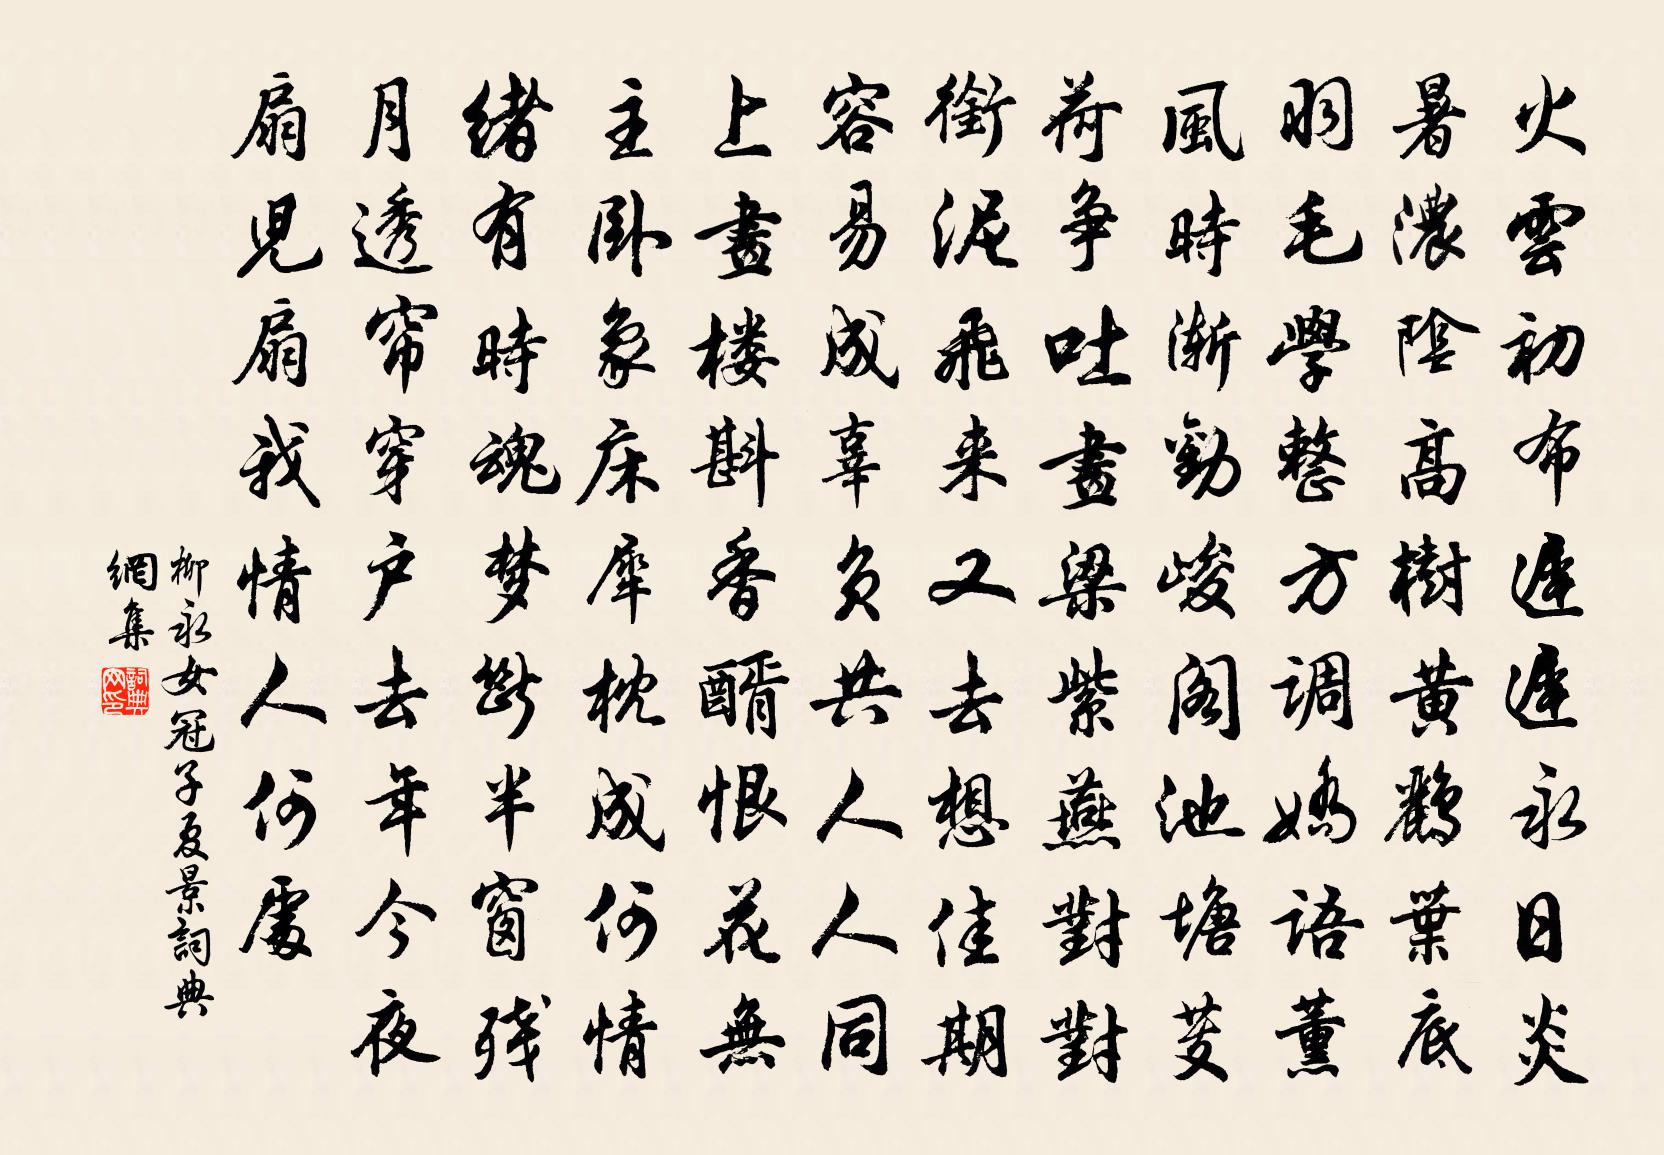 火雲初布遲遲永日炎
暑濃陰高樹黃鸝葉底
羽毛學整方調嬌語薰
風時漸勁峻閣池塘芰
荷爭吐畫梁紫燕對對
銜泥飛来又去想佳期
容易成辜負共人人同
上畫楼斟香醑恨花無
主卧象床犀枕成何情
緒有時魂梦斷半窗残
月透帘穿户去年今夜
扇児扇我情人何處
柳永女冠子夏景詞典
網集
詞典